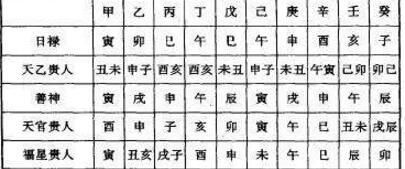 甲 乙 丙 丁 戊 己 庚 辛 壬 癸
日禄 寅 卯 巳 午 巳 午 申 酉 亥 子
天乙贵人 丑未 申子 酉亥 酉亥 未丑 申子 未丑 午寅 己卯 卯己
善神 寅 戌 申 午 辰 寅 戌 申 午 辰
天官贵人 酉 申 子 亥 卯 寅 午 巳 丑未 戌辰
福星贵人 寅 丑亥 戌子 酉 申 未 午 巳 辰 卯